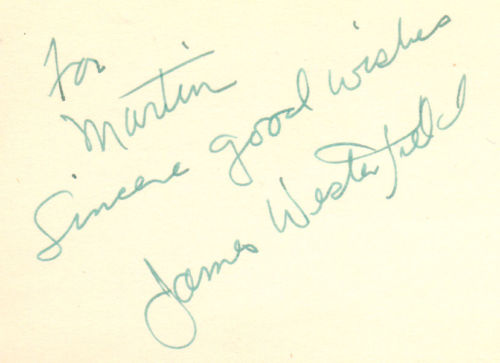 For
Martin
Sincere good wishes
James Westerfield